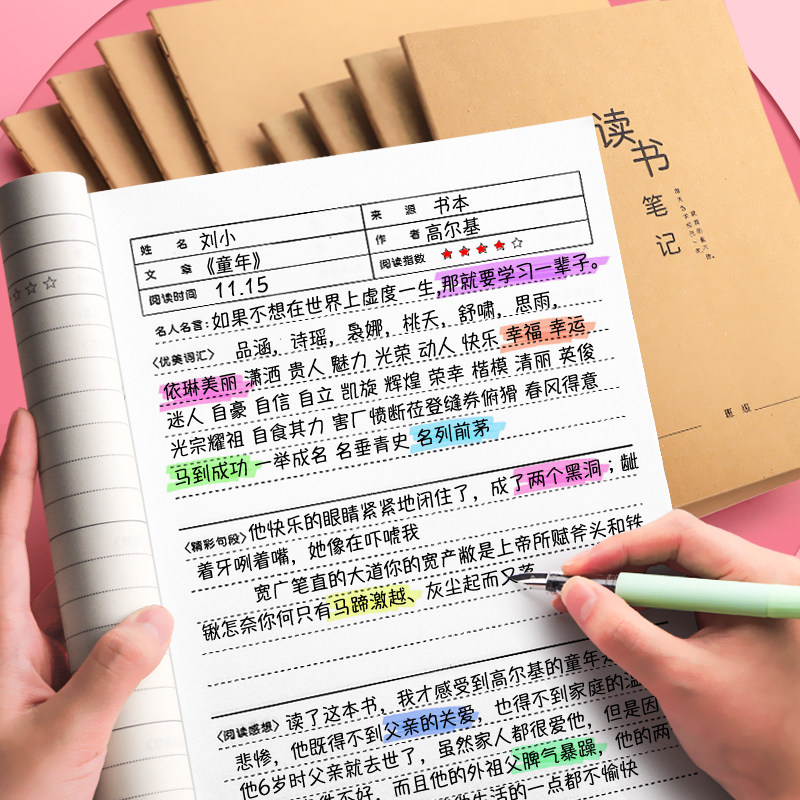 读书
笔记
班级
姓 名 刘小
来 源 书本
文 章 《童年》
作 者 高尔基
阅读时间 11.15
阅读指数 ★★★★☆
名人名言:如果不想在世界上虚度一生,那就要学习一辈子。
〈优美词汇〉 品涵,诗瑶,袅娜,桃夭,舒啸,思雨,
依琳美丽 潇洒 贵人 魅力 光荣 动人 快乐 幸福 幸运
迷人 自豪 自信 自立 凯旋 辉煌 荣幸 楷模 清丽 英俊
光宗耀祖 自食其力 害厂愤断莅登缝券俯猾 春风得意
马到成功 一举成名 名垂青史 名列前茅
〈精彩句段〉他快乐的眼睛紧紧地闭住了,成了两个黑洞;龇
着牙咧着嘴,她像在吓唬我
宽广笔直的大道你的宽产敝是上帝所赋斧头和铁
锹怎奈你何只有马蹄激越、灰尘起而又落
〈阅读感想〉读了这本书,我才感受到高尔基的童年
悲惨,他既得不到父亲的关爱,也得不到家庭的温
他6岁时父亲就去世了,虽然家人都很爱他,但是因
不好,而且他的外祖父脾气暴躁,他的两
生活的一点都不愉快